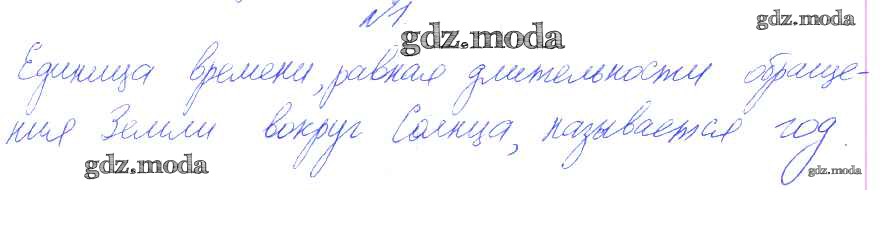 №1
gdz.moda
gdz.moda
Единица времени, равная длительности обраще-
ния Земли вокруг Солнца, называется год.
gdz.moda
gdz.moda